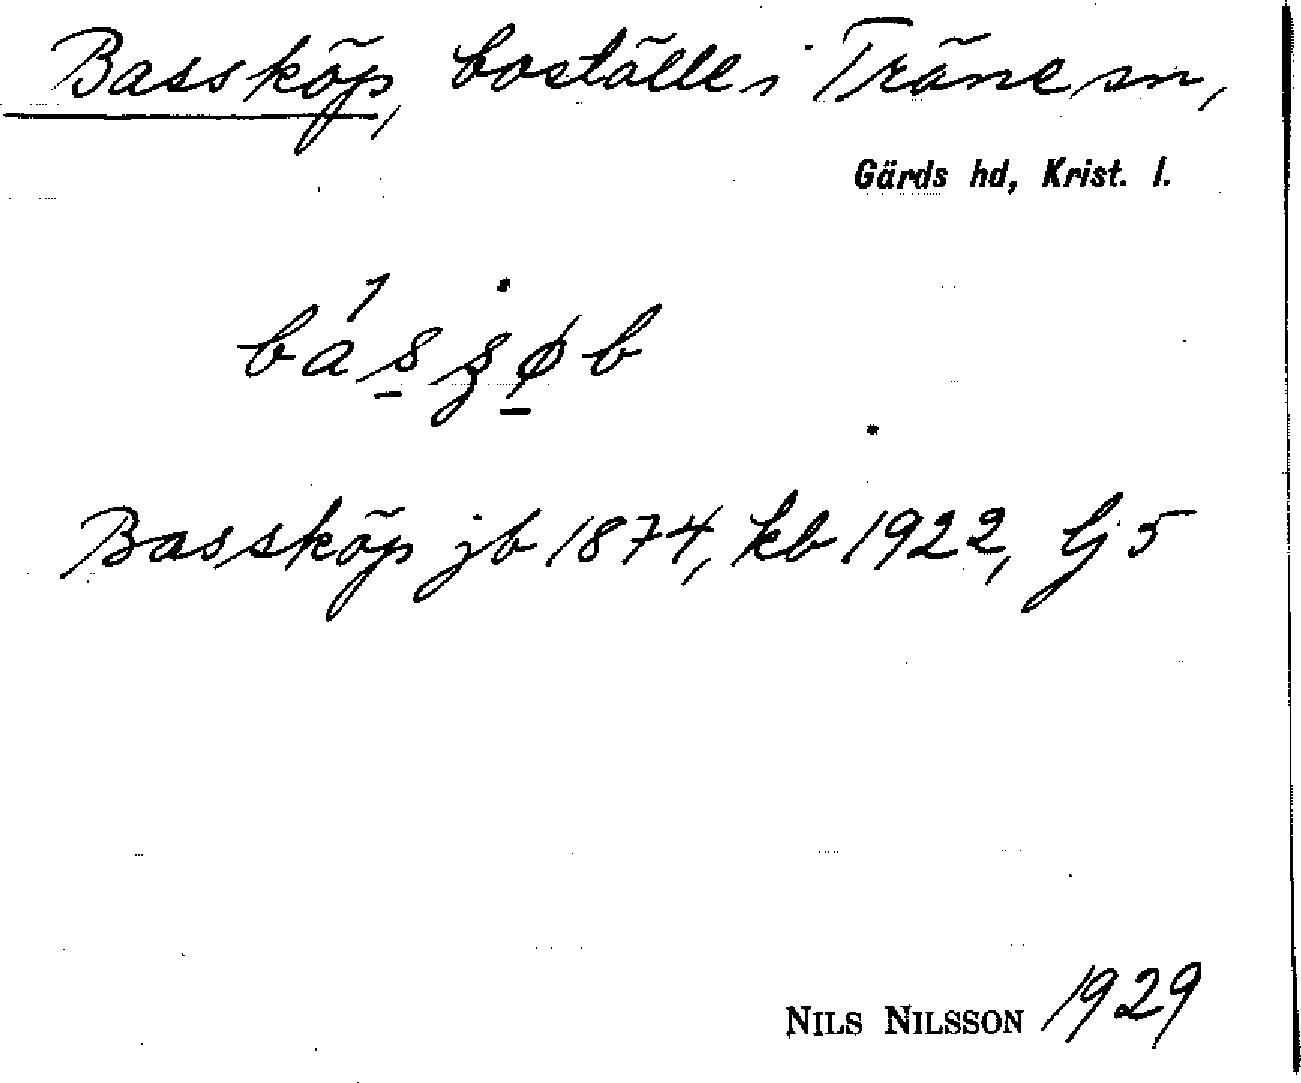 Bassköp, boställe i Träne sn,
Gärds hd, Krist. l.
Bassköp jb 1874, kb 1922, Gj 5
NILS NILSSON 1929